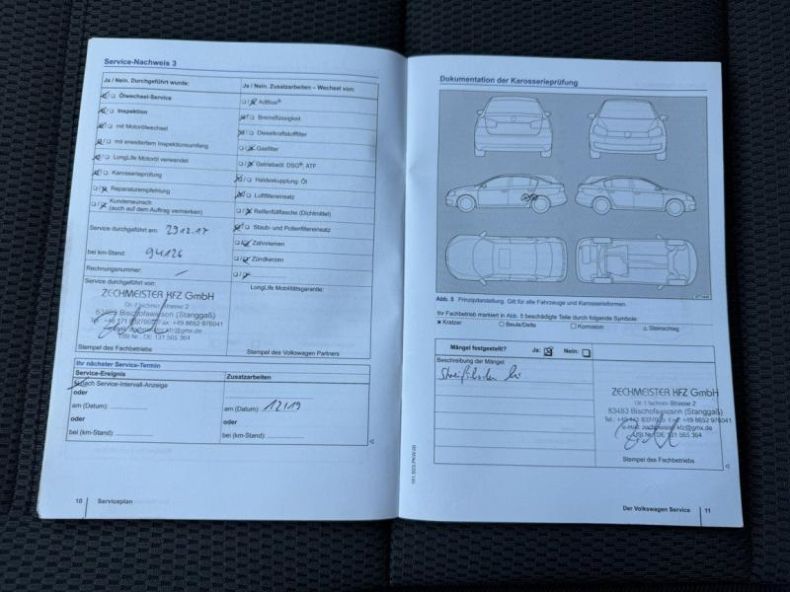 Service-Nachweis 3
Ja / Nein. Durchgeführt wurde:
Ölwechsel-Service
Inspektion
mit Motorölwechsel
mit erweitertem Inspektionsumfang
LongLife Motoröl verwendet
Karosserieprüfung
Reparaturempfehlung
Kundenwunsch
(auch auf dem Auftrag vermerken)
Service durchgeführt am: 29.12.17
bei km-Stand: 94126
Rechnungsnummer:
Service durchgeführt von:
ZECHMEISTER KFZ GmbH
83483 Bischofswiesen (Stanggaß)
Stempel des Fachbetriebs
Ja / Nein. Zusatzarbeiten – Wechsel von:
AdBlue®
Bremsflüssigkeit
Dieselkraftstofffilter
Gasfilter
Getriebeöl: DSG®, ATF
Haldexkupplung: Öl
Luftfiltereinsatz
Reifenfüllflasche (Dichtmittel)
Staub- und Pollenfiltereinsatz
Zahnriemen
Zündkerzen
LongLife Mobilitätsgarantie:
Stempel des Volkswagen Partners
Ihr nächster Service-Termin
Service-Ereignis
Zusatzarbeiten
nach Service-Intervall-Anzeige
oder
am (Datum):
oder
bei (km-Stand):
am (Datum): 12/19
oder
bei (km-Stand):
10 Serviceplan
Dokumentation der Karosserieprüfung
Abb. 3 Prinzipdarstellung. Gilt für alle Fahrzeuge und Karosserieformen.
Ihr Fachbetrieb markiert in Abb. 3 beschädigte Teile durch folgende Symbole:
Kratzer
Beule/Delle
Korrosion
Steinschlag
Mängel festgestellt? Ja: Nein:
Beschreibung der Mängel:
ZECHMEISTER KFZ GmbH
83483 Bischofswiesen (Stanggaß)
Stempel des Fachbetriebs
Der Volkswagen Service 11